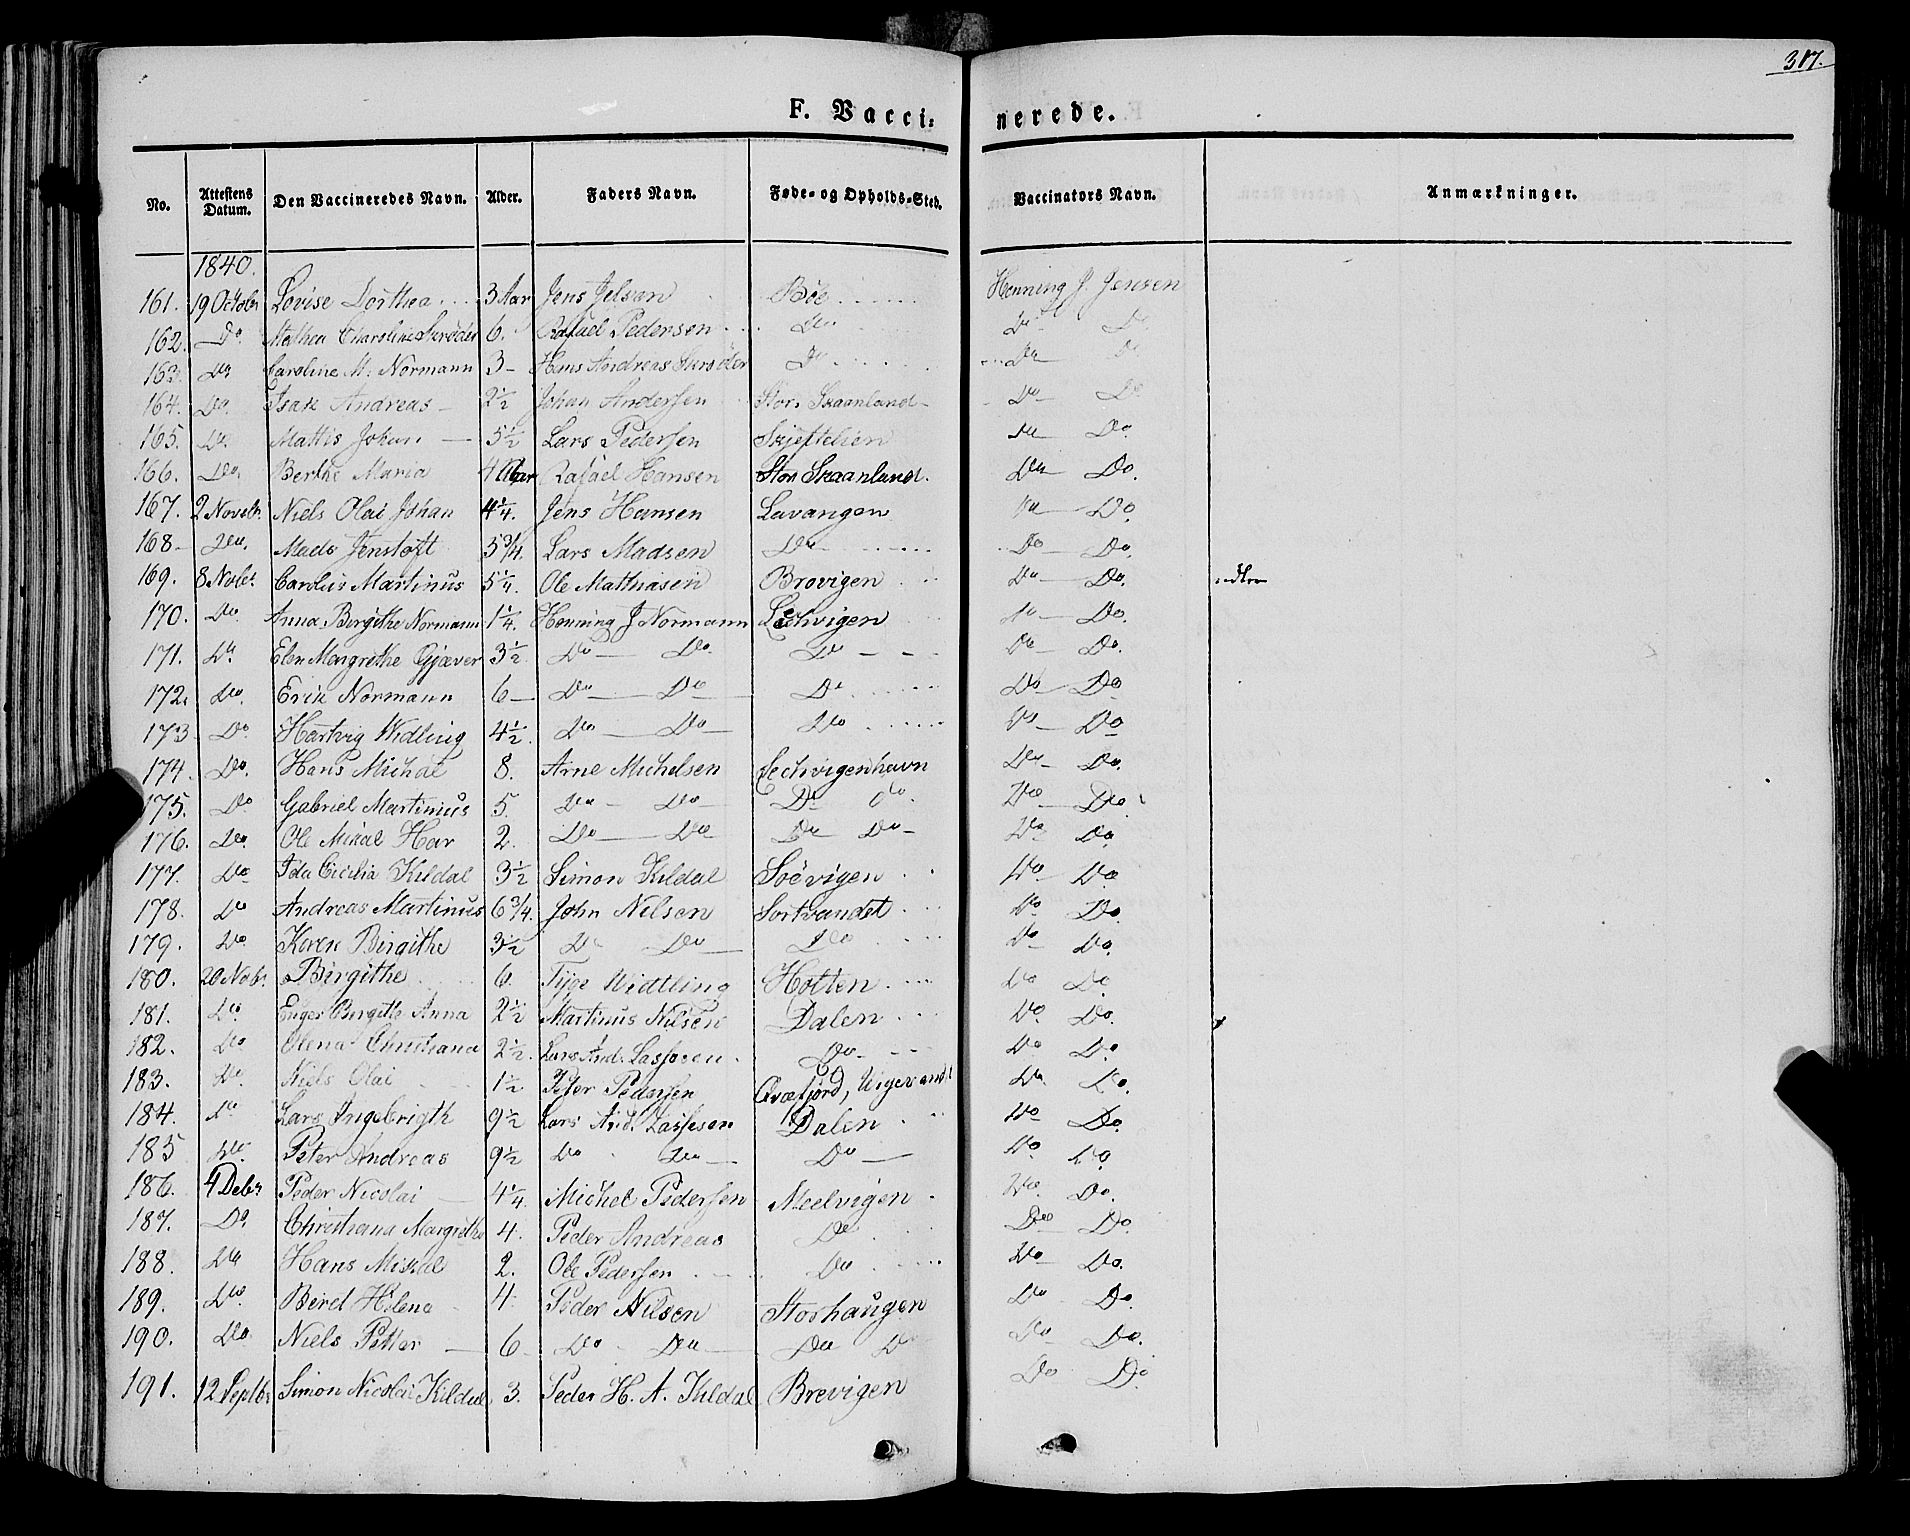 317.
F. Vaccinerede.
No. Attestens Datum. Den Vaccineredes Navn. Alder. Faders Navn. Føde- og Opholds-Sted. Vaccinators Navn. Anmærkninger.
1840.
161. 19 October Lovise Dorthea 3 Aar Jens Jelsan Böe Henning J. Jensen
162. Do. Methea Charoline Skrøder 6. Rafael Pedersen Do Do Do
163. Do Caroline M. Normann 3 – Hans Andreas Skrøder Do Do Do
164. Do. Isak Andreas – 2½ Johan Andersen Stor Skaanland – Do Do
165. Do. Mattis Johan – 5½ Lars Pedersen Skjeftelien Do Do.
166. Do. Berthe Maria 4 Aar Rafael Hansen Stor Skaanland. Do Do.
167. 2 Novebr. Niels Olai Johan 4¼. Jens Hansen Lavangen Do Do.
168. Do. Mads Jensloft 5¾. Lars Madsen Do Do Do.
169. 8 Nobr. Carolus Martinus 5¼. Ole Mathiasen Brovigen Do Do.
170. Do Anna Birgithe Normann 1¼. Henning J Normann Lechvigen Do Do.
171. Do Elen Margrethe Gjæver 3½ Do Do. Do Do Do.
172. Do. Erik Normann 6 – Do Do Do Do Do
173 Do Hartvig Widling 4½. Do Do Do Do Do
174. Do. Hans Michal 8. Arne Michelsen Lechvigenhavn Do Do.
175. Do Gabriel Martinus 5. Do Do Do do. Do Do.
176. Do. Ole Mikal Har 2. Do Do Do Do – Do Do
177. Do Ida Cicilia Kildal 3½ Simon Kildal Soëvigen Do Do
178. Do Andreas Martinus 6¾. John Nelsen Sortvandet Do Do.
179. Do. Karen Birgithe 3½ Do Do Do Do Do.
180. 20 Nobr. Birgithe 6. Tyge Widtling Holten Do Do
181. Do. Enger Birgitte Anna 2½ Martinus Nilsen Dalen Do Do.
182. Do Olena Christiana 2½. Lars And. Lassesen. Do Do Do.
183. Do. Niels Olai 1½ Peter Pedersen Qvæfjord, Do Do.
184. Do Lars Ingebrigth 9½ Lars And. Lassesen Dalen Do Do.
185 Do. Peter Andreas 9½ Do Do Do Do Do.
186. 4 Debr Peder Nicolai 4¼ Michel Pedersen Meelvigen Do. Do.
187. Do. Christiana Margrethe 4. Peder Andreas Do Do Do
188. Do Hans Mikal 2. Ole Pedersen Do Do Do.
189. Do. Beret Helena 4. Peder Nilsen Storhaugen Do Do.
190. Do Niels Petter – 6 Do Do Do Do Do Do.
191. 12 Septbr Simon Nicolai Kildal 3. Peder H. A. Kildal Brevigen Do Do